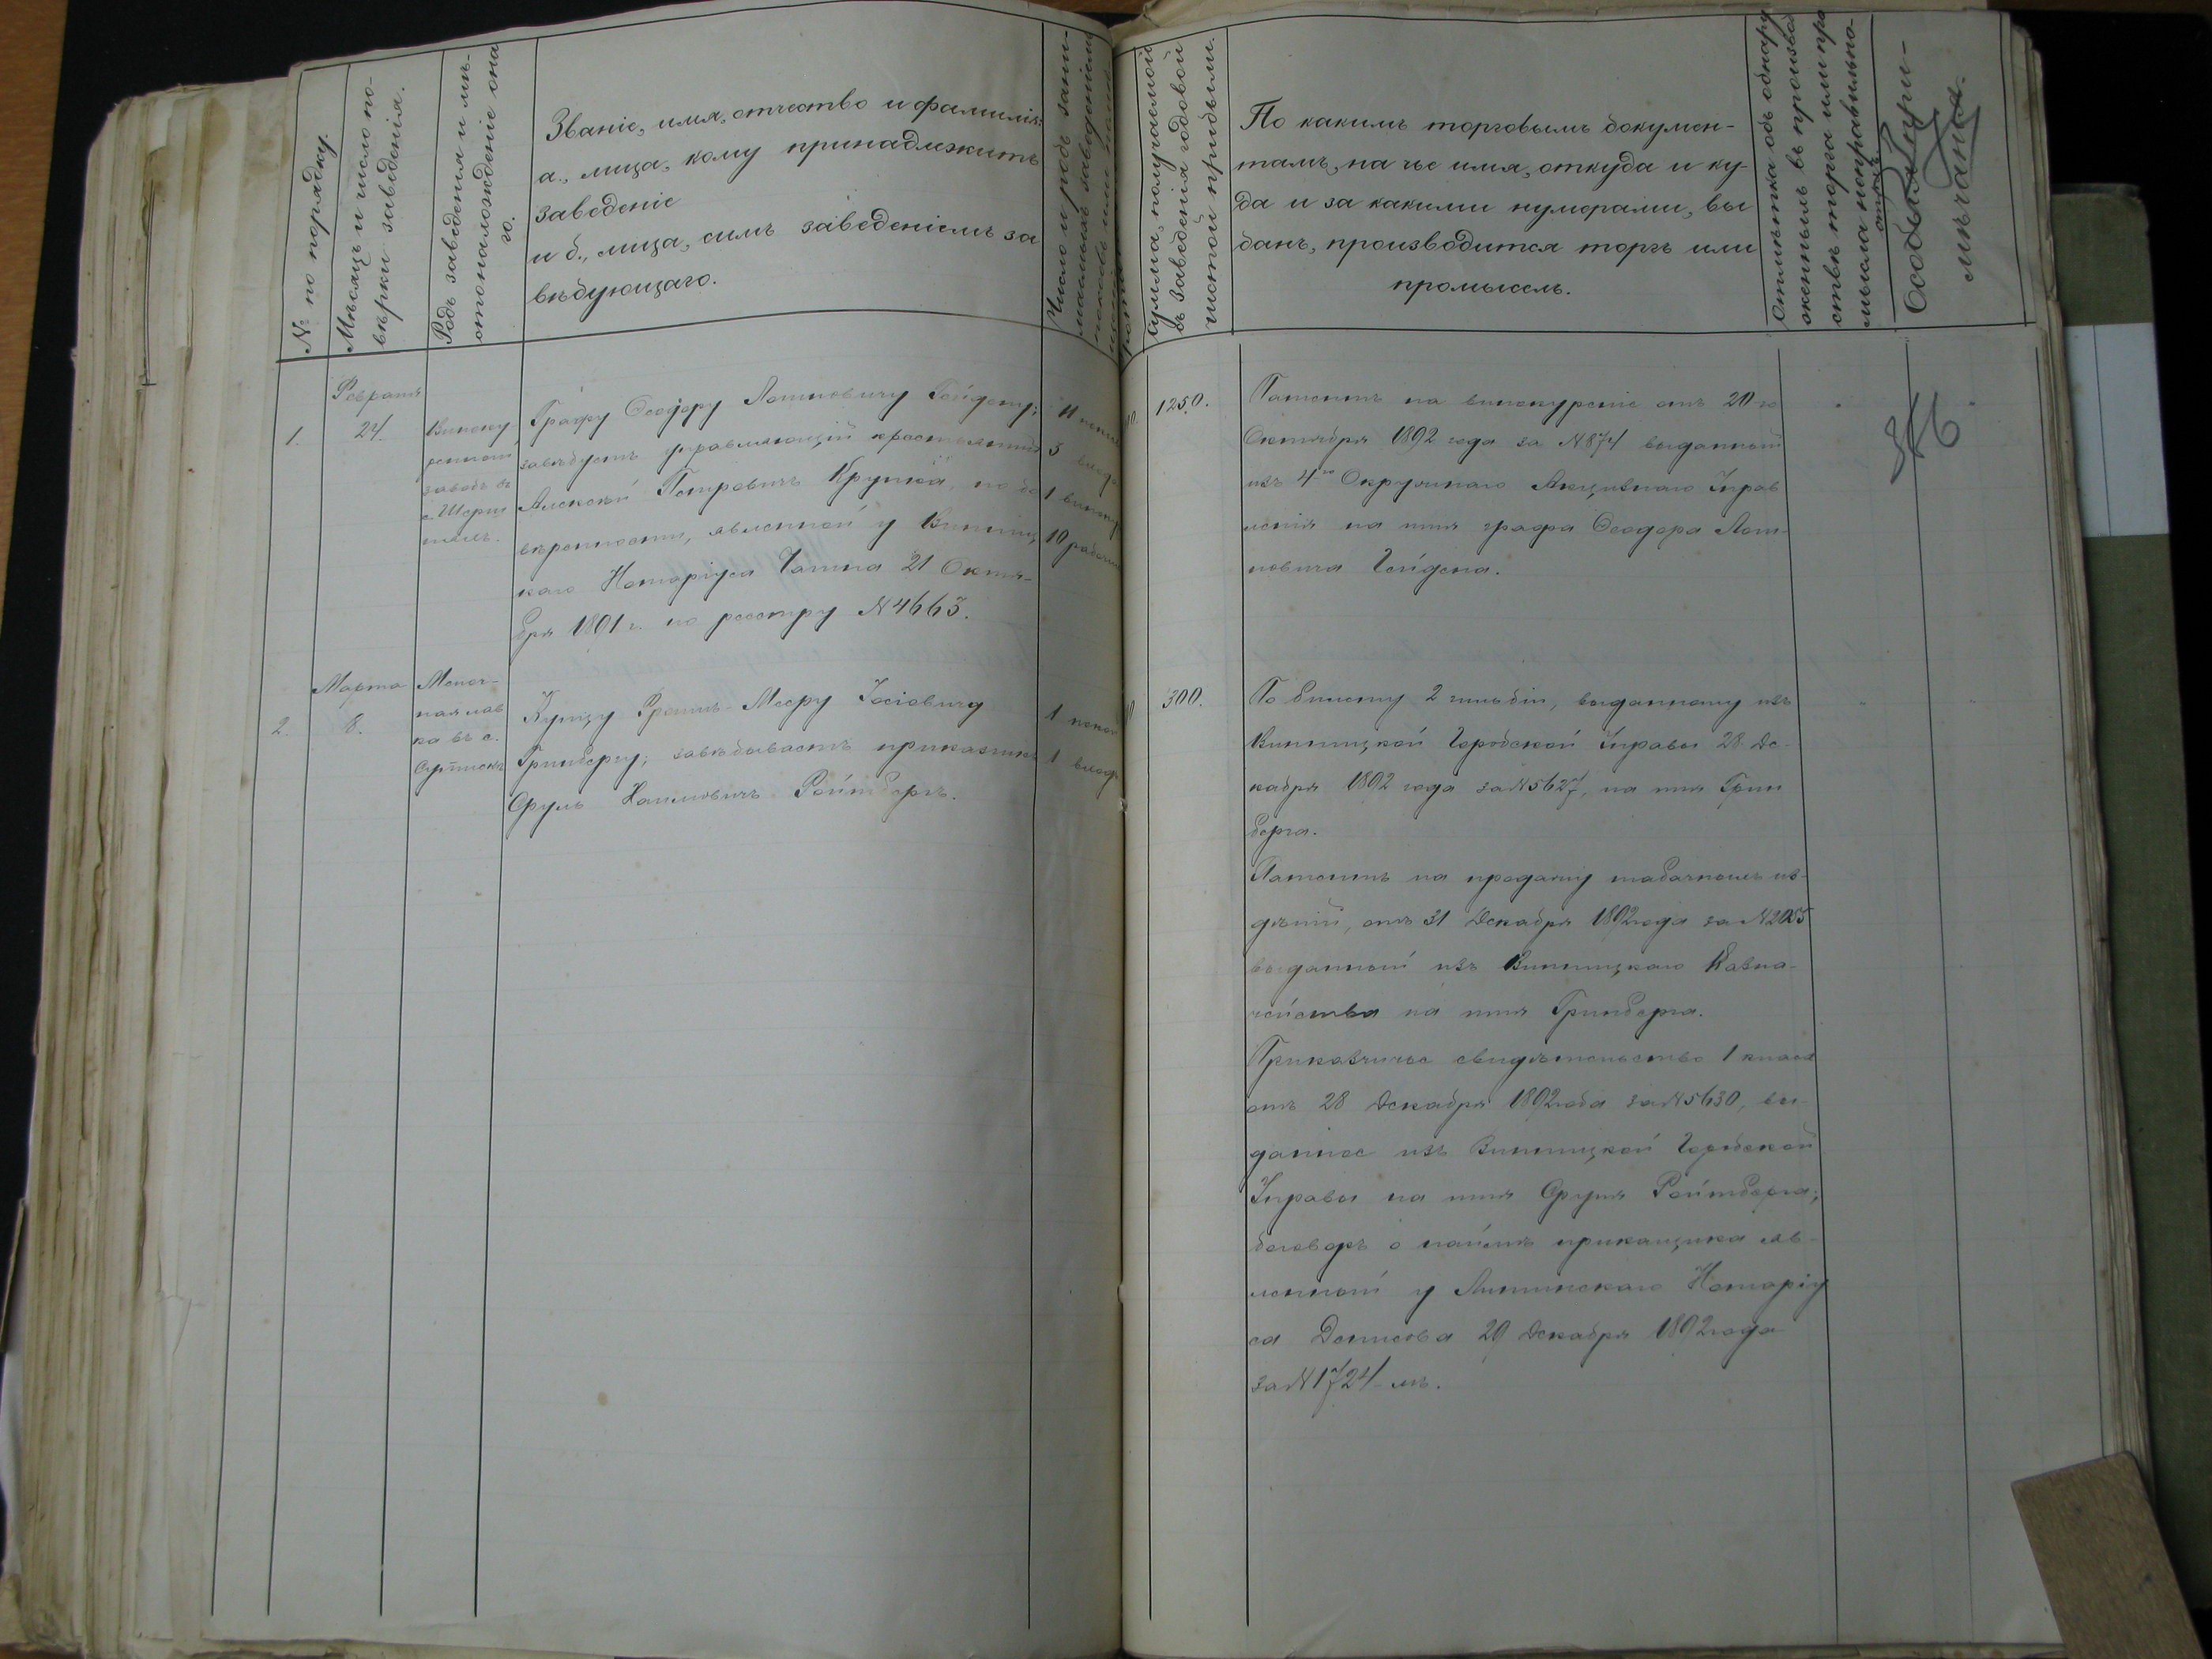 № по порядку.
Мѣсяцъ и число по-
вѣрки заведенія.
Родъ заведенія и мѣ-
стонахожденіе она
го.
Званіе, имя, отчество и фамилія:
а., лица, кому принадлежитъ
заведеніе
и б., лица, симъ заведеніемъ за
вѣдующаго.
Число и родъ зани-
маемыхъ заведеніемъ
Сумма, получаемой
въ заведенія годовой
чистой прибыли.
По какимъ торговымъ докумен-
тамъ, на чье имя, откуда и ку-
да и за какими нумерами, вы
данъ, производится торгъ или
промыселъ.
Отмѣтка объ обнару
женныхъ въ производ
ствѣ торга или про
мысла неправильно-
стяхъ
Особыя при-
мѣчанія.
1.
Февраля
24.
Виноку
ренный
заводъ въ
Графу Феодору Логиновичу Гейдену;
завѣдуетъ управляющій крестьянинъ
Алексѣй Петровичъ Крупка, по до
вѣренности, явленной у Винниц
каго Нотаріуса Чапина 21 Октя-
бря 1891 г. по реестру N 4663.
3
1
10 рабочих
1250.
Патентъ на винокуреніе отъ 20 го
Октября 1892 года за N 874 выданный
изъ 4го Окружнаго Акцизнаго Управ
ленія на имя графа Феодора Логи-
новича Гейдена.
2.
Марта
8.
Мелоч-
ная лав
ка въ с.
Купцу
Мееру Іосіовичу
Гринбергу; завѣдываетъ прикащикъ
Сруль Хаимовичъ Ройтбергъ.
1
1
300.
По билету 2 гильдіи, выданному изъ
Винницкой Городской Управы 28 Де-
кабря 1892 года за N 5627, на имя Грин
берга.
Патентъ на продажу табачныхъ из-
дѣлій, отъ 31 Декабря 1892 года за N 2085
выданный изъ Винницкаго Казна-
чейства на имя Гринберга.
Приказчичье свидѣтельство 1 класса
отъ 28 Декабря 1892 года за N 5630, вы-
данное изъ Винницкой Городской
Управы на имя Сруля Ройтберга;
договоръ о наймѣ прикащика яв-
ленный у Литинскаго Нотаріу
са Денисова 29 Декабря 1892 года
за N 1724-мъ.